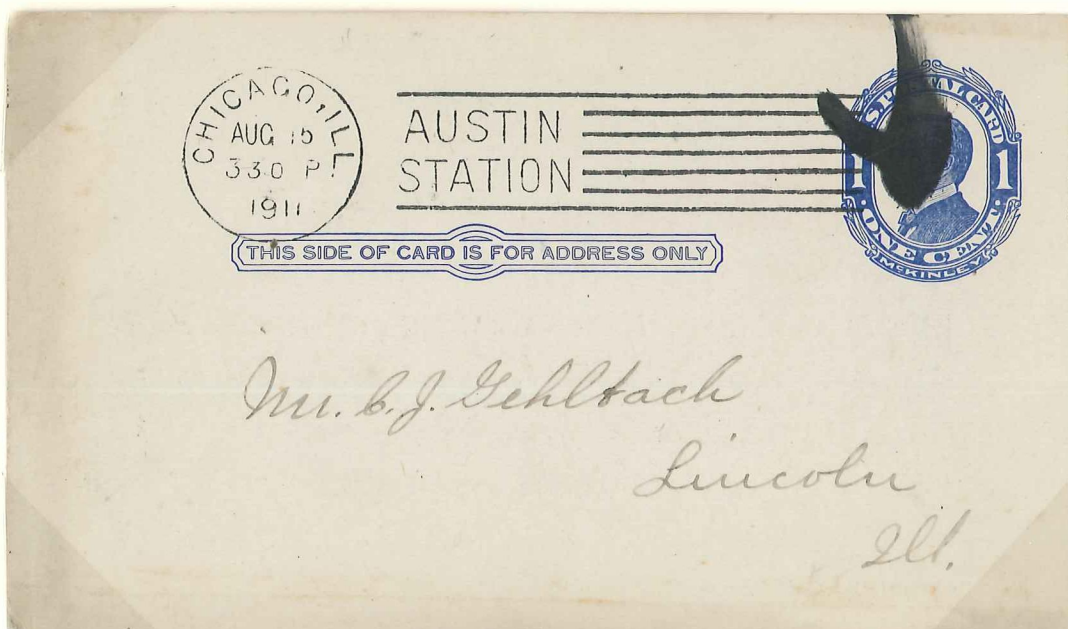 CHICAGO, ILL.
AUG 15
330 P
1911
AUSTIN
STATION
U.S. POSTAL CARD
1 1
ONE CENT
McKINLEY
THIS SIDE OF CARD IS FOR ADDRESS ONLY
Mr. C. J. Gehlbach
Lincoln
Ill.